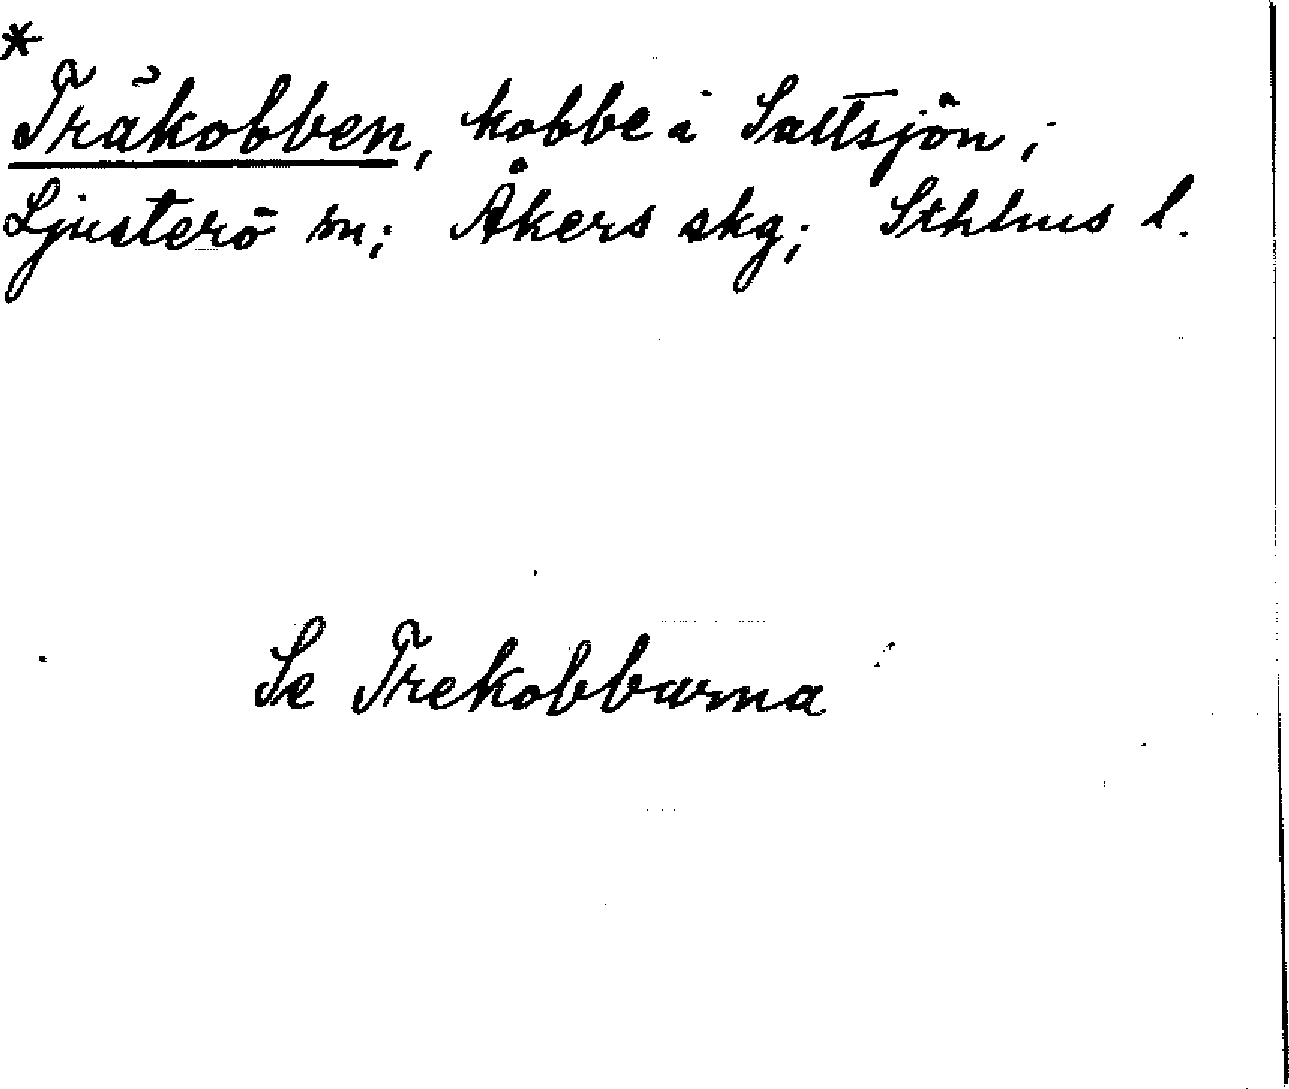 *
Träkobben, kobbe i Saltsjön;
Ljusterö sn; Åkers skg; Sthlms l.
Se Trekobbarna